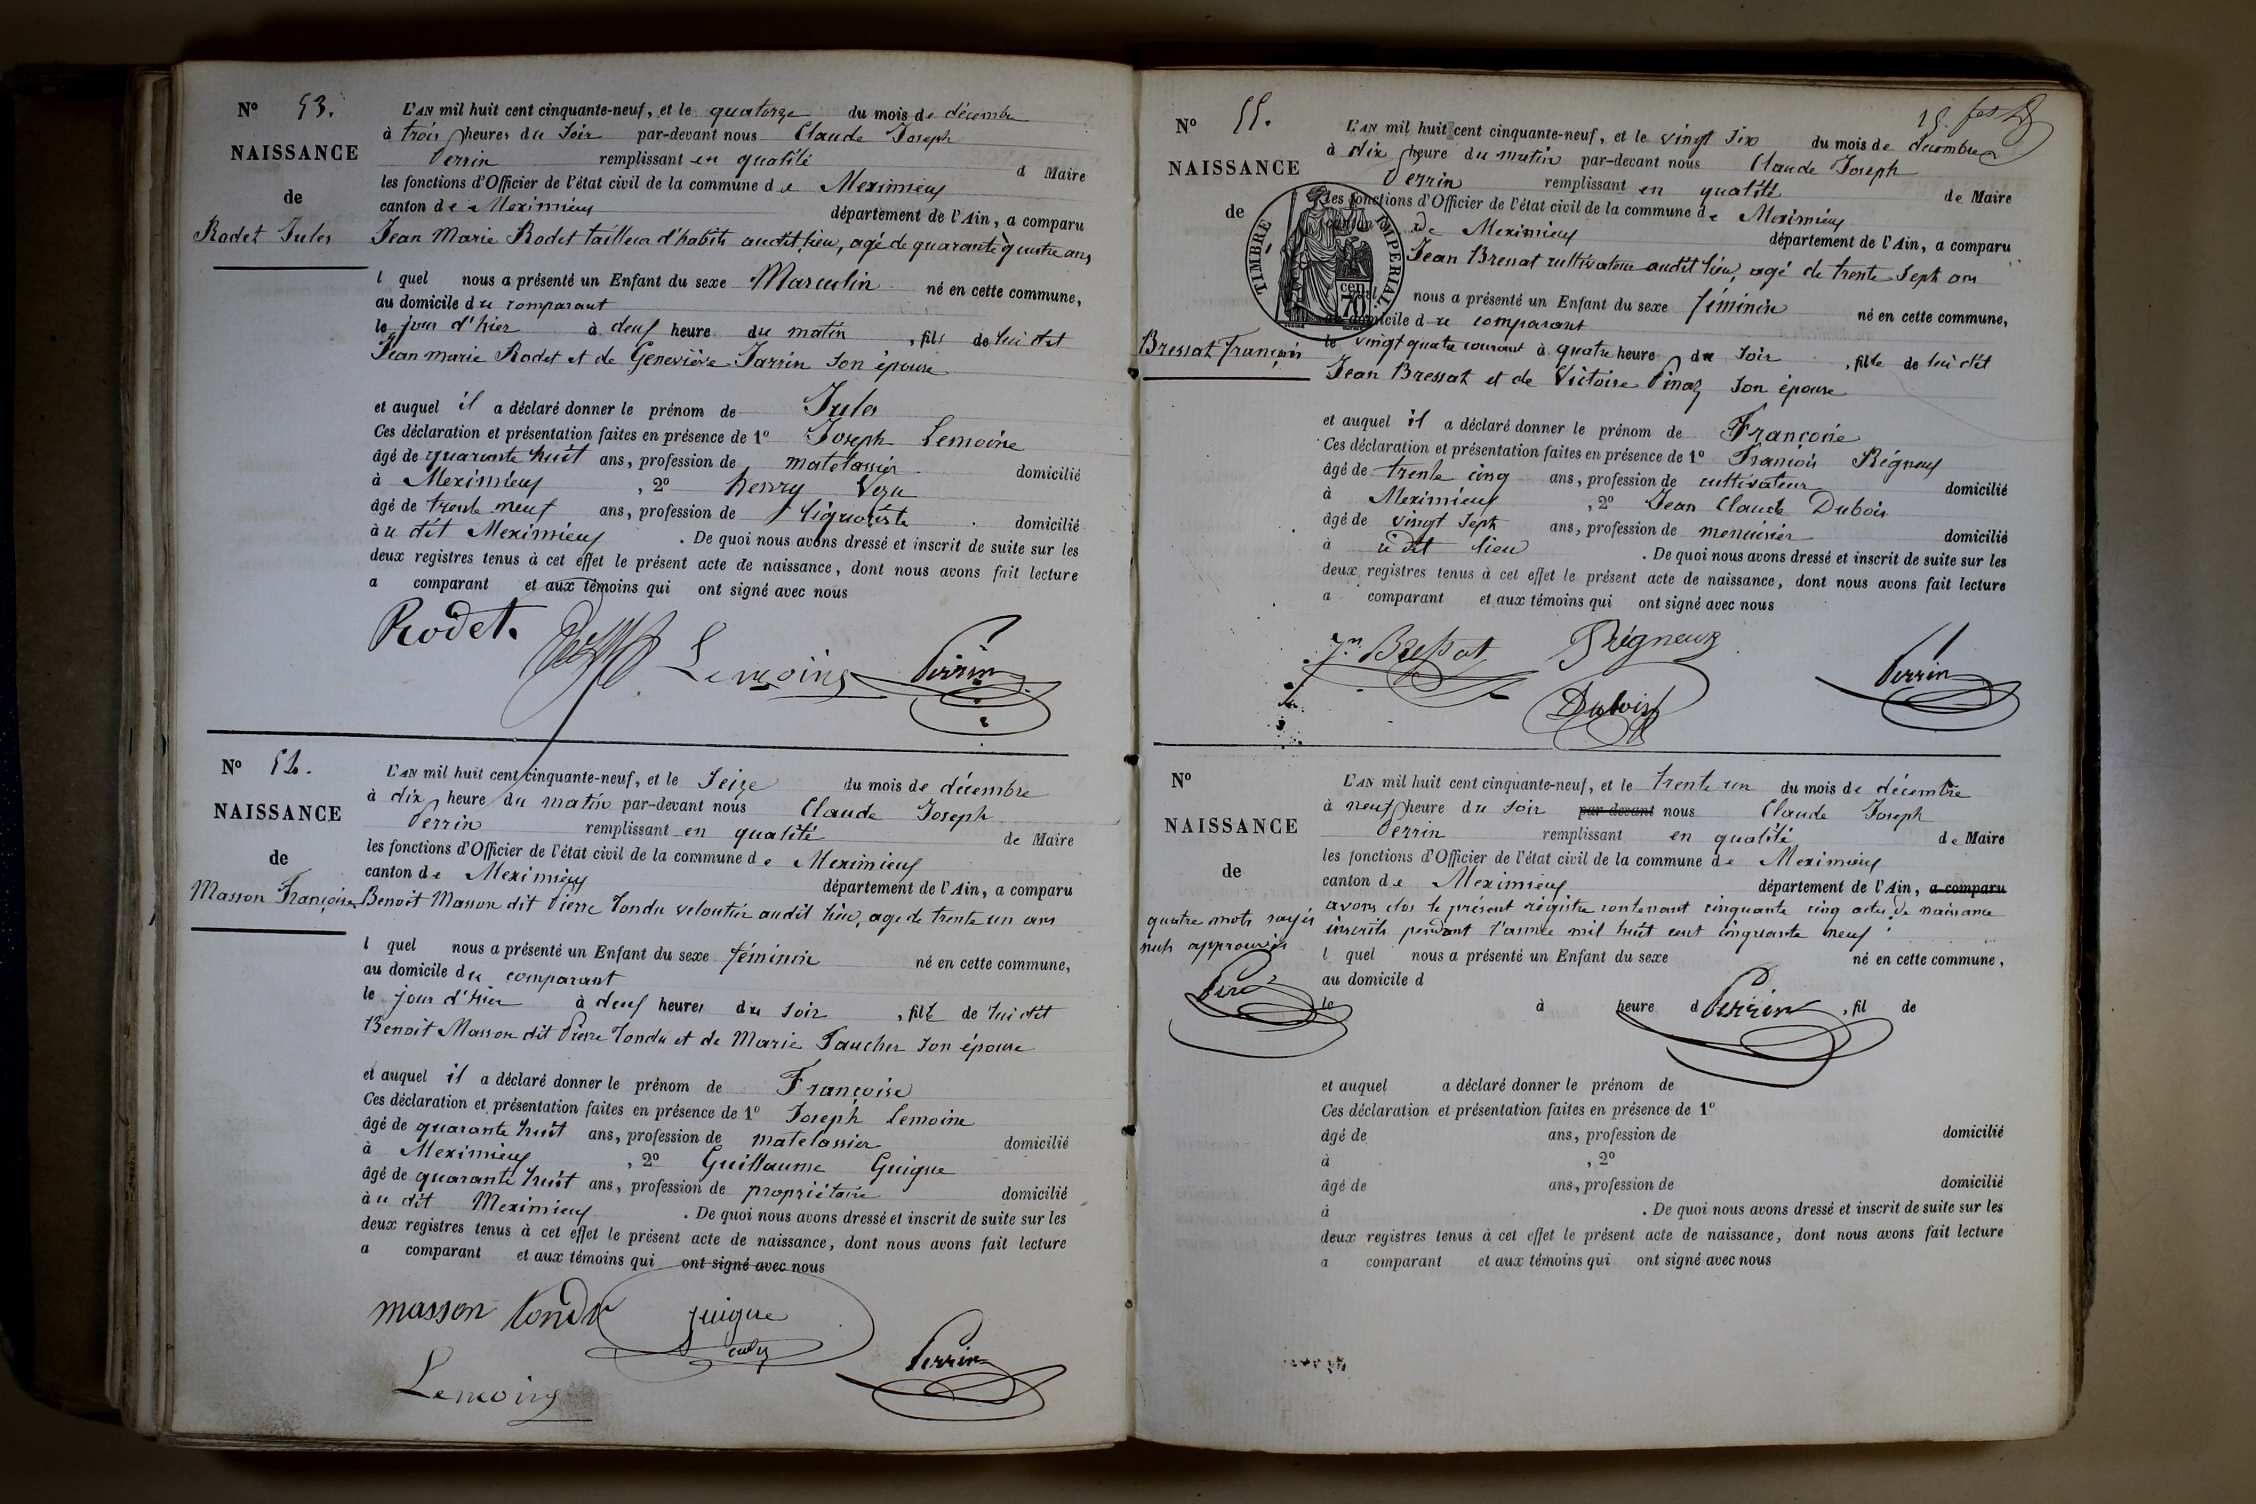 N° 53.
NAISSANCE
de
Rodet Jules
L'AN mil huit cent cinquante-neuf, et le quatorze du mois de décembre
à trois heures du soir par-devant nous Claude Joseph
Perrin remplissant en qualité d Maire
les fonctions d'Officier de l'état civil de la commune de Meximieux
canton de Meximieux département de l'Ain, a comparu
Jean Marie Rodet tailleur d'habits audit lieu, agé de quarante quatre ans,
l quel nous a présenté un Enfant du sexe Masculin né en cette commune,
au domicile du comparant
le jour d'hier à deux heure du matin, fils de lui dit
Jean marie Rodet et de Geneviève Jarrin son épouse
et auquel il a déclaré donner le prénom de Jules
Ces déclaration et présentation faites en présence de 1° Joseph Lemoine
âgé de quarante huit ans, profession de matelassier domicilié
à Meximieux, 2° henry
âgé de trente neuf ans, profession de liquoriste domicilié
au dit Meximieux. De quoi nous avons dressé et inscrit de suite sur les
deux registres tenus à cet effet le présent acte de naissance, dont nous avons fait lecture
a comparant et aux témoins qui ont signé avec nous
Rodet. Lemoine Perrin
N° 54.
NAISSANCE
de
Masson Françoise
L'AN mil huit cent cinquante-neuf, et le seize du mois de décembre
à dix heure du matin par-devant nous Claude Joseph
Perrin remplissant en qualité de Maire
les fonctions d'Officier de l'état civil de la commune de Meximieux
canton de Meximieux département de l'Ain, a comparu
Benoit Masson dit Pierre Tondu veloutier audit lieu, age de trente un ans
l quel nous a présenté un Enfant du sexe féminin né en cette commune,
au domicile du comparant
le jour d'hier à deux heures du soir, fille de lui dit
Benoit Masson dit Pierre Tondu et de Marie Faucher son épouse
et auquel il a déclaré donner le prénom de Françoise
Ces déclaration et présentation faites en présence de 1° Joseph Lemoine
âgé de quarante huit ans, profession de matelassier domicilié
à Meximieux, 2° Guillaume Guigue
âgé de quarante huit ans, profession de propriétaire domicilié
au dit Meximieux. De quoi nous avons dressé et inscrit de suite sur les
deux registres tenus à cet effet le présent acte de naissance, dont nous avons fait lecture
a comparant et aux témoins qui ont signé avec nous
masson tondu guigue
Perrin
Lemoine
N° 55.
NAISSANCE
de
Bressat François
TIMBRE IMPERIAL
cen
70
L'AN mil huit cent cinquante-neuf, et le vingt six du mois de décembre
à dix heure du matin par-devant nous Claude Joseph
Perrin remplissant en qualité de Maire
les fonctions d'Officier de l'état civil de la commune de Meximieux
de Meximieux département de l'Ain, a comparu
Jean Bressat cultivateur audit lieu, agé de trente sept ans
nous a présenté un Enfant du sexe féminin né en cette commune,
au domicile du comparant
le vingt quatre courant à quatre heure du soir, fille de lui dit
Jean Bressat et de Victoire Pinaz son épouse
et auquel il a déclaré donner le prénom de Françoise
Ces déclaration et présentation faites en présence de 1° François Régneux
âgé de trente cinq ans, profession de cultivateur domicilié
à Meximieux, 2° Jean Claude Dubois
âgé de vingt sept ans, profession de menuisier domicilié
à dit lieu. De quoi nous avons dressé et inscrit de suite sur les
deux registres tenus à cet effet le présent acte de naissance, dont nous avons fait lecture
a comparant et aux témoins qui ont signé avec nous
Jn Bressat Régneux Perrin
Dubois
N°
NAISSANCE
de
quatre mots rayés
nuls approuvés
L'AN mil huit cent cinquante-neuf, et le trente un du mois de décembre
à neuf heure du soir par-devant nous Claude Joseph
Perrin remplissant en qualité de Maire
les fonctions d'Officier de l'état civil de la commune de Meximieux
canton de Meximieux département de l'Ain, a comparu
avons clos le présent régistre contenant cinquante cinq actes de naissance
inscrits pendant l'année mil huit cent cinquante neuf
l quel nous a présenté un Enfant du sexe né en cette commune,
au domicile d
le à heure d Perrin, fil de
et auquel a déclaré donner le prénom de
Ces déclaration et présentation faites en présence de 1°
âgé de ans, profession de domicilié
à, 2°
âgé de ans, profession de domicilié
à. De quoi nous avons dressé et inscrit de suite sur les
deux registres tenus à cet effet le présent acte de naissance, dont nous avons fait lecture
a comparant et aux témoins qui ont signé avec nous